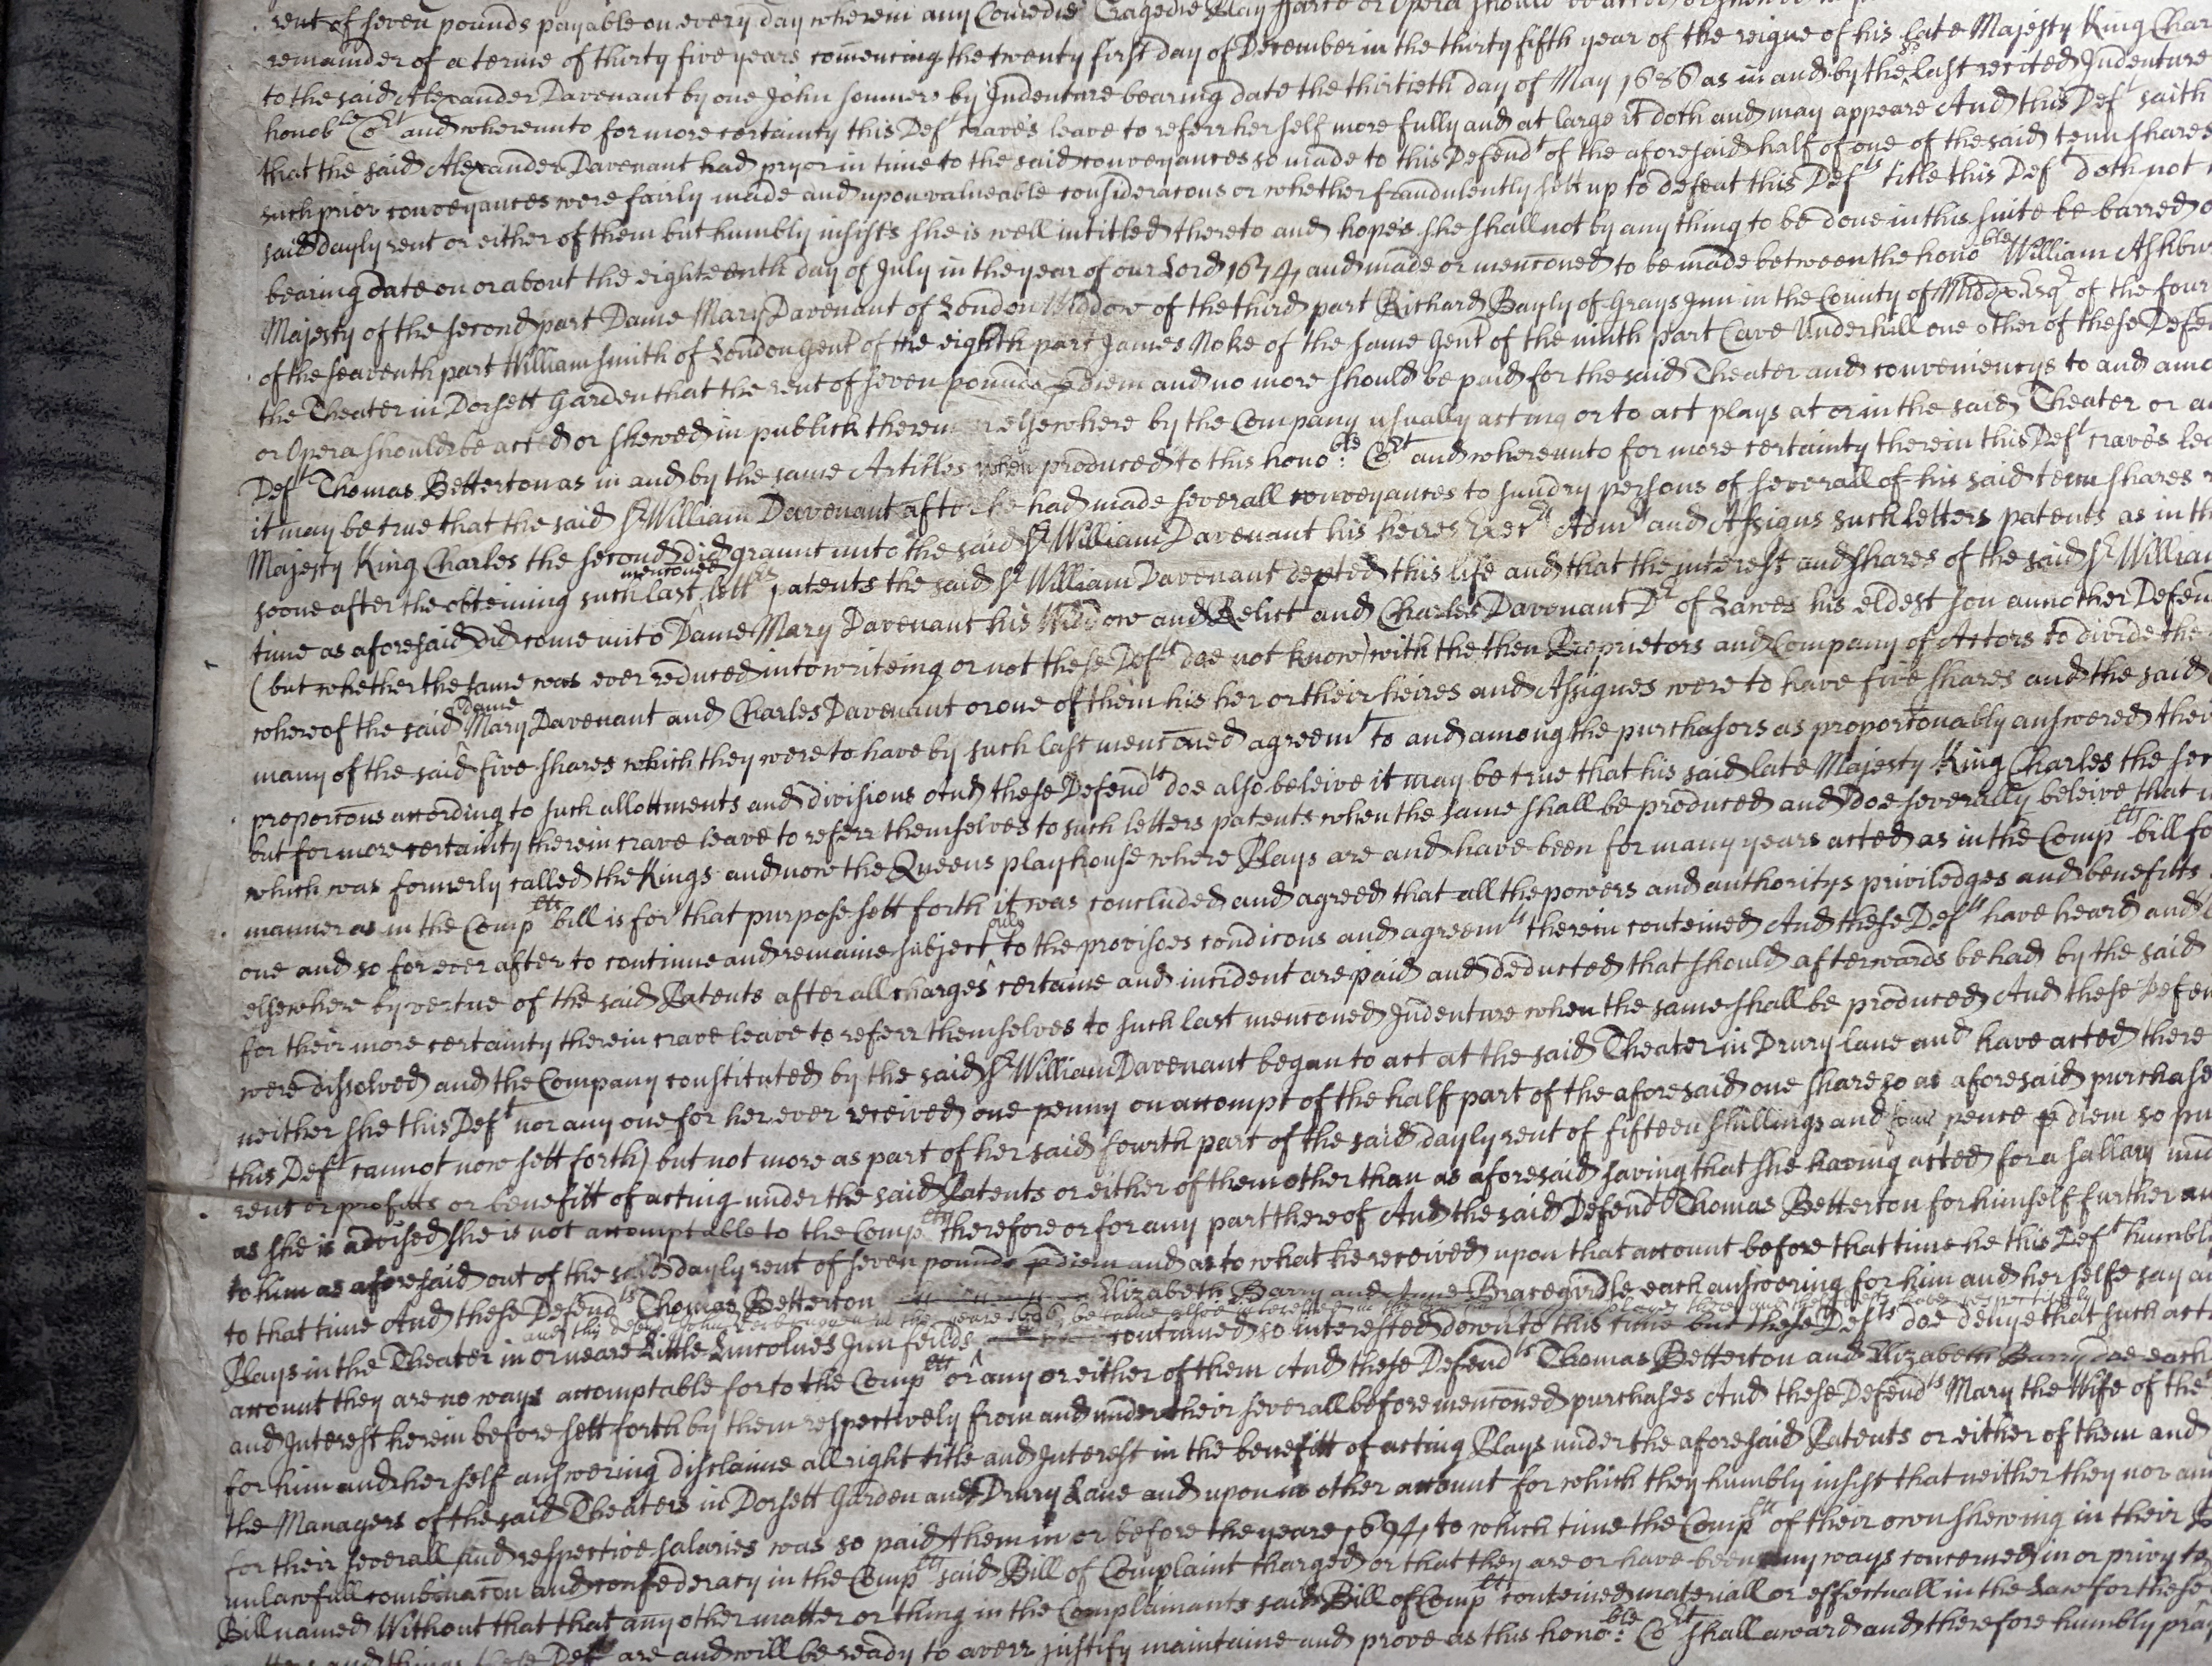 rent of seven pounds payable on every day wherein any Comedie Tragedie Play Farce or Opera should be acted or shewed
remainder of a terme of thirty five years comencing the twenty first day of December in the thirty fifth year of the reigne of his late Majesty King Char
to the said Alexander Davenant by one John Somners by Indenture bearing date the thirtieth day of May 1686 as in and by the sd last recited Indenture
honoble Cort and whereunto for more certainty this Deft crave's leave to referr her self more fully and at large it doth and may appeare And this Deft saith
that the said Alexander Davenant had pryor in time to the said conveyances so made to this Defendt of the aforesaid half of one of the said tenn shares
such prior conveyances were fairly made and upon valueable consideracons or whether fraudulently sett up to defeat this Defts title this Deft doth not
said dayly rent or either of them but humbly insists she is well intitled thereto and hopes she shall not by any thing to be done in this suite be barred
bearing date on or about the eighteenth day of July in the year of our Lord 1674 and made or menconed to be made between the honoble William Ashbur
Majesty of the second part Dame Mary Davenant of London Widdow of the third part Richard Bayly of Grays Inn in the County of Middx Esqr of the four
of the seaventh part William Smith of London Gent of the eighth part James Noke of the same Gent of the ninth part Cave Underhill one other of these Defe
the Theater in Dorsett Garden that the rent of seven pounds p diem and no more should be paid for the said Theater and conveniencys to and amo
or Opera should be acted or shewed in publick therein or elsewhere by the Company usually acting or to act plays at or in the said Theater or
Deft Thomas Betterton as in and by the same Articles when produced to this honoble: Cort and whereunto for more certainty therein this Deft crave's lea
it may be true that the said Sr William Davenant after he had made severall conveyances to sundry persons of severall of his said tenn shares
Majesty King Charles the second did graunt unto the said Sr William Davenant his heires Exects Admrs and Assigns such letters patents as in th
soone after the obteining such last menconed letters patents the said Sr William Davenant depted this life and that the interest and shares of the said Sr William
time as aforesaid did come unto Dame Mary Davenant his Widdow and Relict and Charles Davenant Dr of Lawes his eldest son annother Defen
(but whether the same was ever reduced into writeing or not these Defts doe not know) with the then Proprietors and Company of Actors to divide the
whereof the said Dame Mary Davenant and Charles Davenant or one of them his her or their heires and Assignes were to have five shares and the said
many of the said five shares which they were to have by such last menconed agreemt to and among the purchasors as proportonably answered their
proporcons according to such allottments and divisions And these Defendts doe also beleive it may be true that his said late Majesty King Charles the sec
but for more certainty therein crave leave to referr themselves to such letters patents when the same shall be produced and doe severally beleive that
which was formerly called the Kings and now the Queens playhouse where Plays are and have been for many years acted as in the Complts bill fo
manner as in the Complts bill is for that purpose sett forth it was concluded and agreed that all the powers and authoritys priviledges and benefitts
one and so for ever after to continue and remaine subject only to the provisoes condicons and agreemts therein conteined And these Defts have heard and
elsewhere by vertue of the said Patents after all charges certaine and incident are paid and deducted that should afterwards be had by the said
for their more certainty therein crave leave to referr themselves to such last menconed Indenture when the same shall be produced And these Defen
were dissolved and the Company constituted by the said Sr William Davenant began to act at the said Theater in Drury lane and have acted there
neither she this Deft nor any one for her ever received one penny on accompt of the half part of the aforesaid one share so as aforesaid purchase
this Deft cannot now sett forth) but not more as part of her said fowrth part of the said dayly rent of fifteen shillings and four pence p diem so pur
rent or profitts or benefitt of acting under the said Patents or either of them other than as aforesaid saving that she having acted for a sallary und
as she is advised she is not accomptable to the Complts therefore or for any part thereof And the said Defendt Thomas Betterton for himself further an
to him as aforesaid out of the said dayly rent of seven pounds p diem and as to what he received upon that account before that time he this Deft humbl
to that time And these Defendts Thomas Betterton Elizabeth Barry and Anne Bracegirdle each answering for him and herselfe say
and this defendt John in the yeare
Plays in the Theater in or neare Little Lincolnes Inn feilds continued so interested down to this time but these Defts doe denye that such act
account they are no ways accomptable for to the Complts or any or either of them And these Defendts Thomas Betterton and Elizabeth Barry doe each
and Interest herein before sett forth by them respectively from and under their severall before menconed purchases And these Defendts Mary the Wife of the
for him and her self answering disclaime all right title and Interest in the benefitt of acting Plays under the aforesaid Patents or either of them and
the Managers of the said Theaters in Dorsett Garden and Drury Lane and upon no other account for which they humbly insist that neither they nor any
for their severall and respective salaries was so paid them in or before the yeare 1694 to which time the Complts of their own shewing in their
unlawfull combinacon and confederacy in the Complts said Bill of Complaint charged or that they are or have been any ways concerned in or privy to
Bill named Without that that any other matter or thing in the Complainants said Bill of Complt conteined materiall or effectuall in the Law for these
and things these Defts are and will be ready to averr justify maintaine and prove as this honoble: Cort shall award and therefore humbly pray